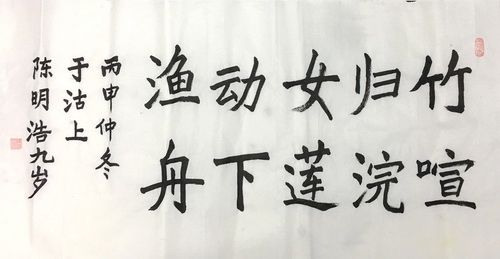 竹喧
归浣
女莲
动下
渔舟
丙申仲冬
于沽上
陈明浩九岁